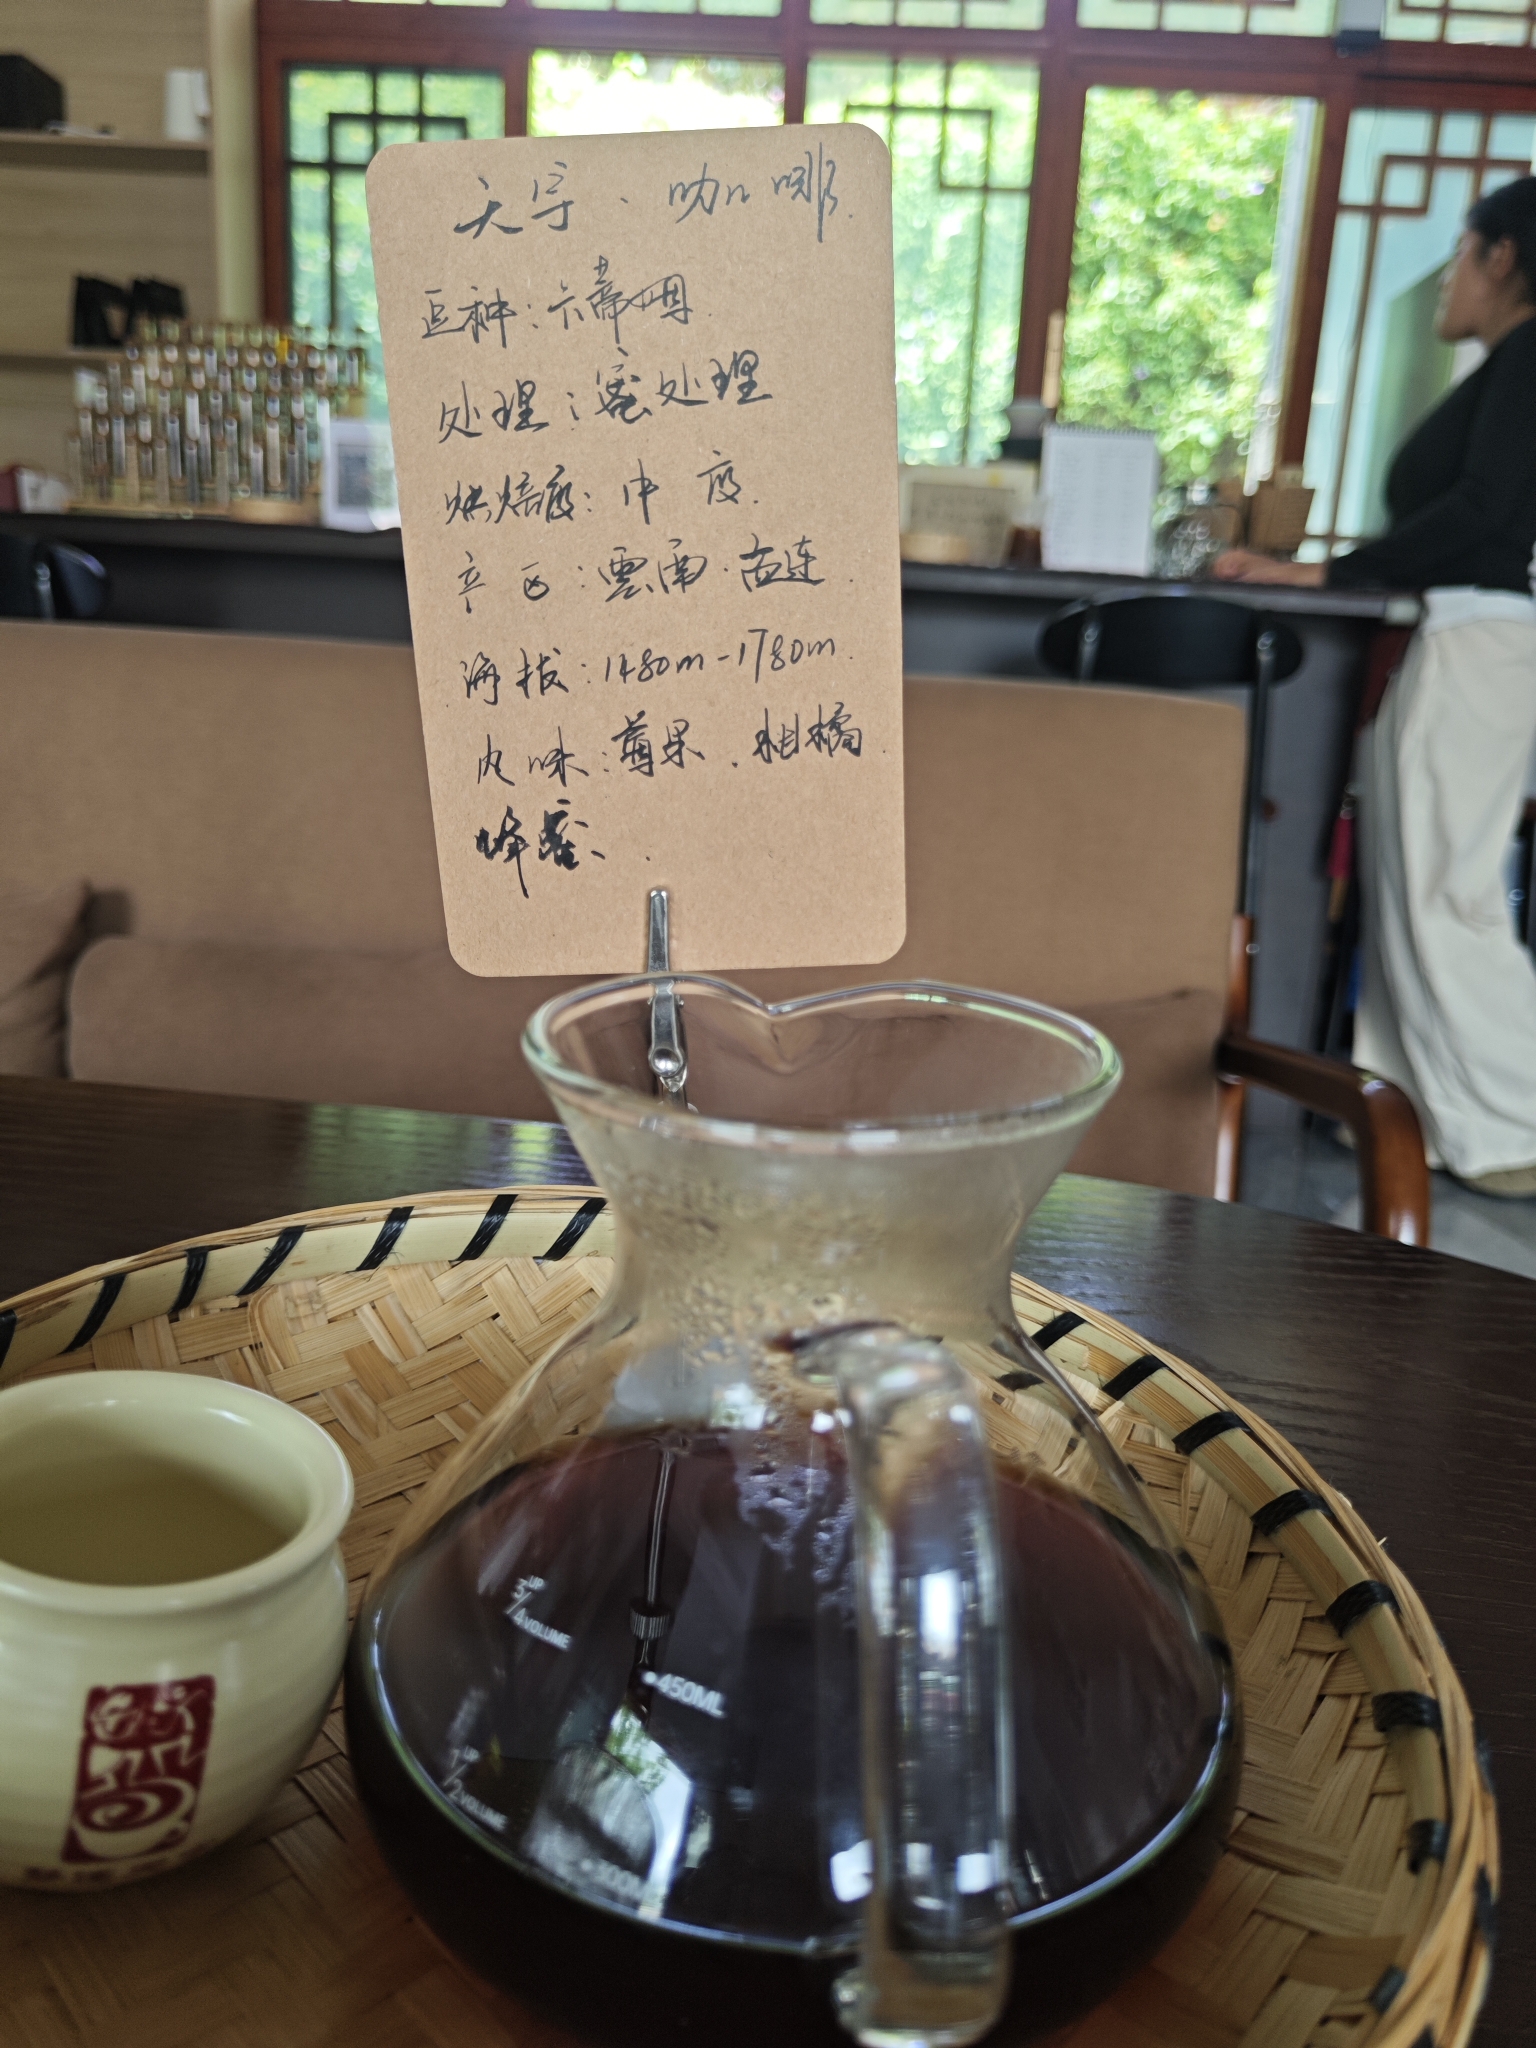 天宇·咖啡
豆种：卡蒂姆
处理：蜜处理
烘焙度：中度
产区：雲南·孟连
海拔：1480m-1780m
风味：苹果．柑橘
蜂蜜
UP
3/4 VOLUME
•450ML
UP
1/2 VOLUME
•300M